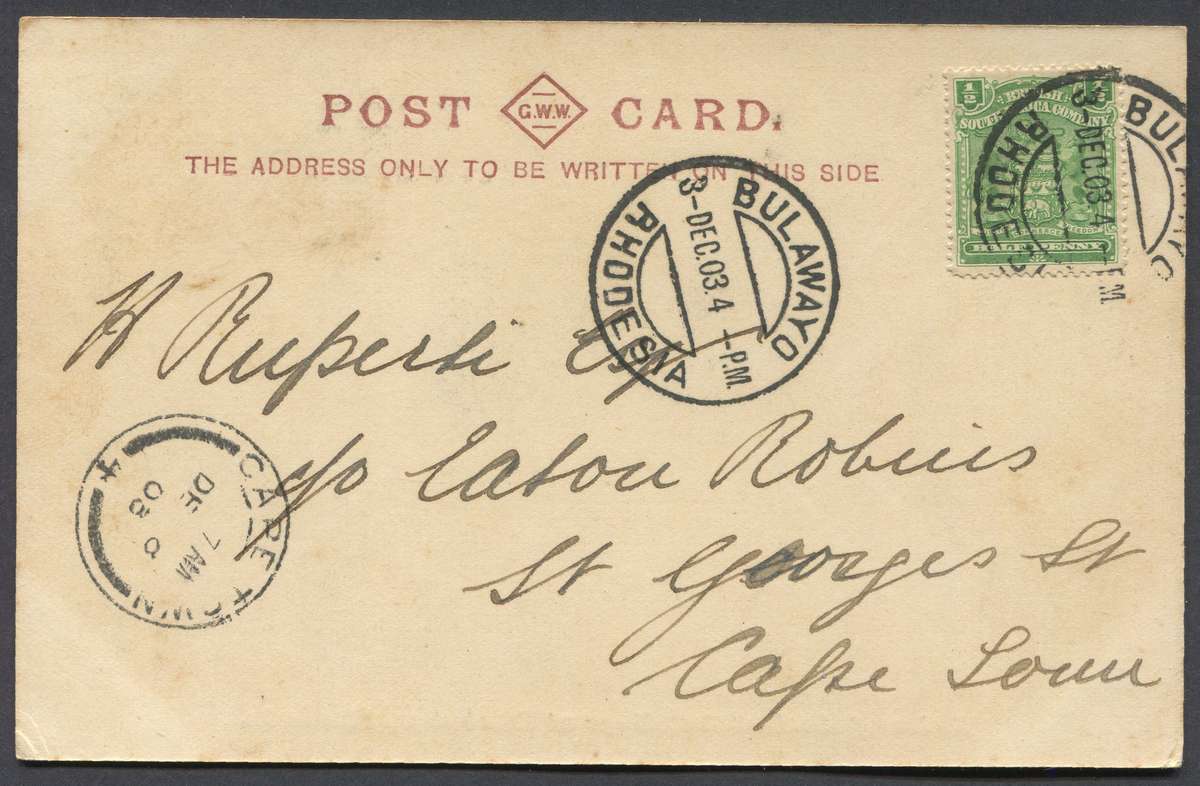 POST G.W.W. CARD.
THE ADDRESS ONLY TO BE WRITTEN ON THIS SIDE
1/2
BRITISH
SOUTH AFRICA COMPANY
HALF PENNY
BULAWAYO
3-DEC.03.4 -P.M.
RHODESIA
BULAWAYO
3-DEC.03.4 -P.M.
RHODESIA
H Ruperti Esq
c/o Eaton Robins
St Georges St
Cape Town
CAPE TOWN
7 AM
DE
03